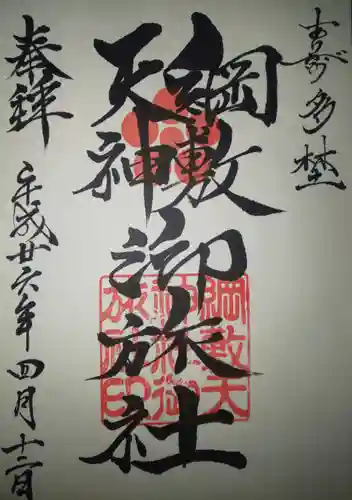 喜多埜
綱敷
天神
御旅社
奉拝
平成廿六年四月十二日
綱敷天
神社御
旅社印